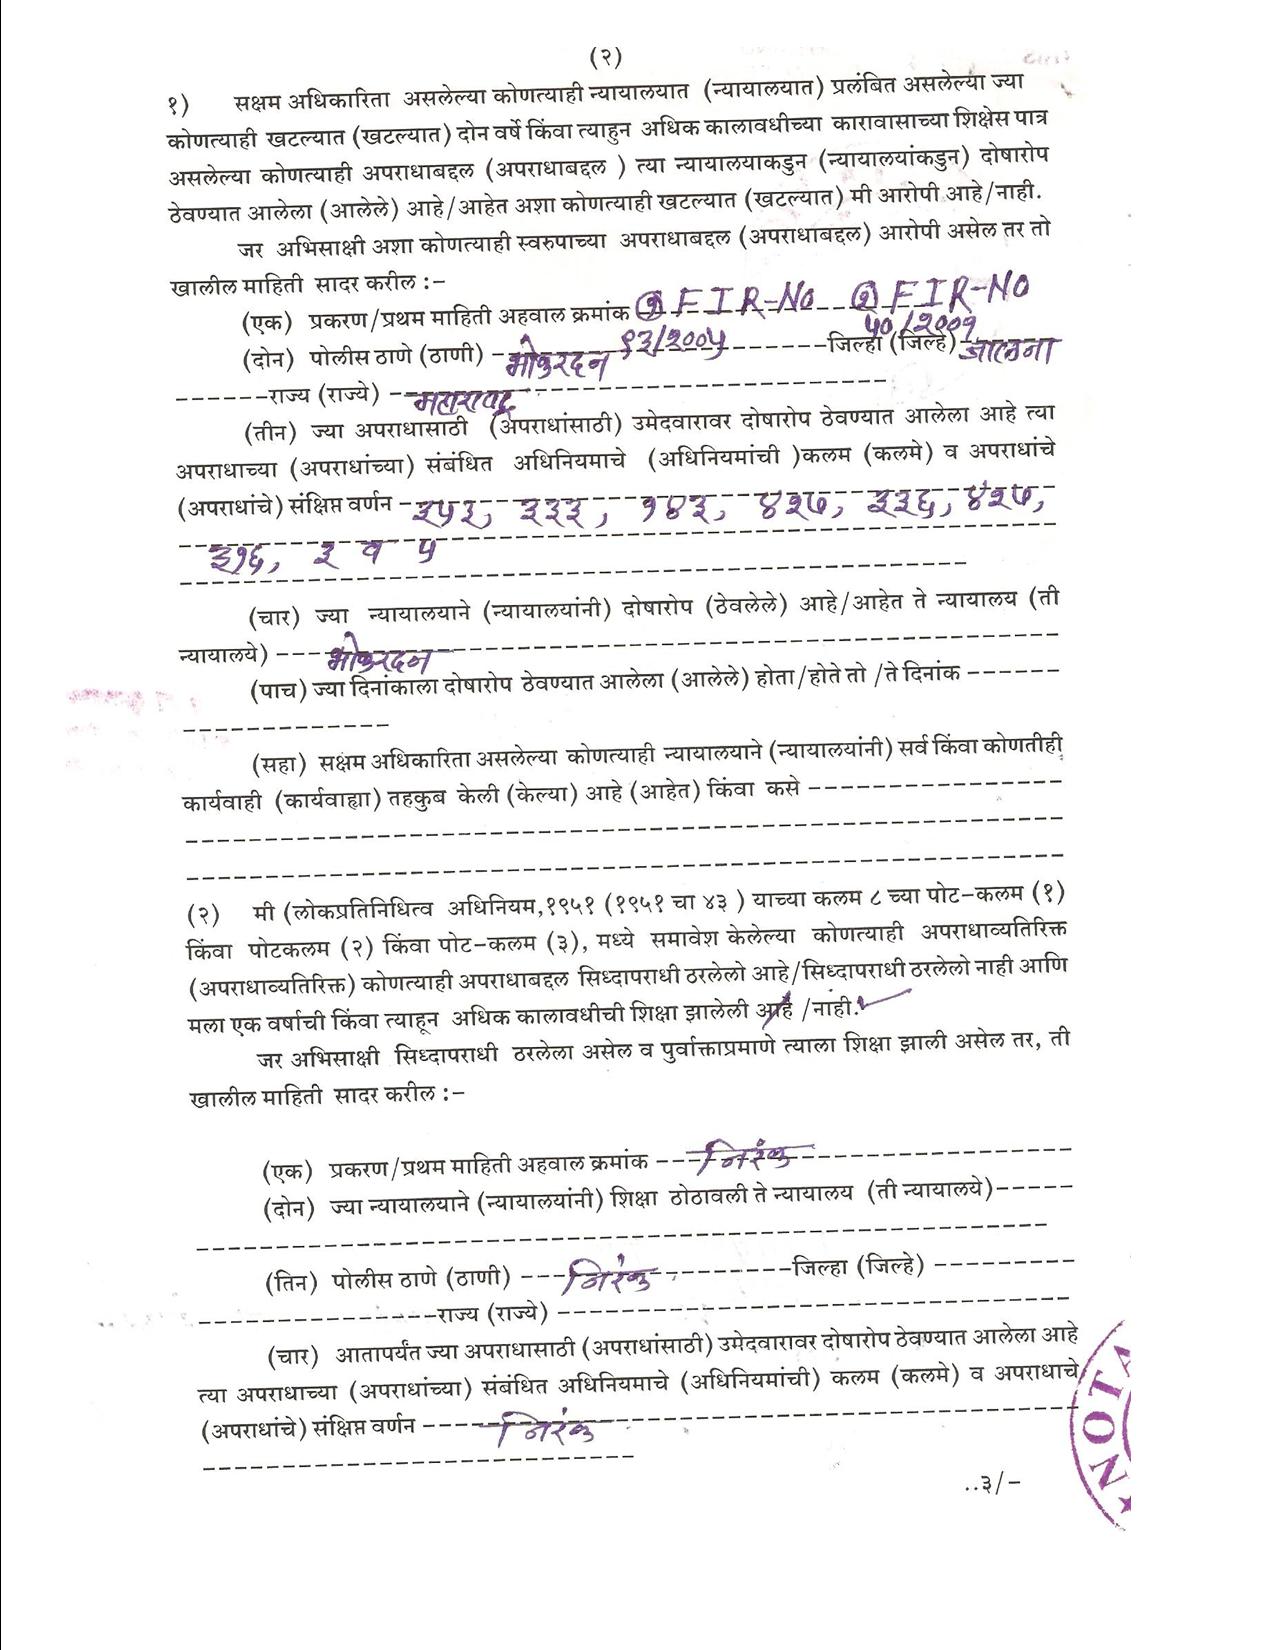 (२)
१) सक्षम अधिकारिता असलेल्या कोणत्याही न्यायालयात (न्यायालयात) प्रलंबित असलेल्या ज्या
कोणत्याही खटल्यात (खटल्यात) दोन वर्षे किंवा त्याहुन अधिक कालावधीच्या कारावासाच्या शिक्षेस पात्र
असलेल्या कोणत्याही अपराधाबद्दल (अपराधाबद्दल ) त्या न्यायालयाकडुन (न्यायालयांकडुन) दोषारोप
ठेवण्यात आलेला (आलेले) आहे/आहेत अशा कोणत्याही खटल्यात (खटल्यात) मी आरोपी आहे/नाही.
जर अभिसाक्षी अशा कोणत्याही स्वरुपाच्या अपराधाबद्दल (अपराधाबद्दल) आरोपी असेल तर तो
खालील माहिती सादर करील :-
(एक) प्रकरण/प्रथम माहिती अहवाल क्रमांक (१) FIR-No (२) FIR-No
९३/२००५ ५०/२००९
(दोन) पोलीस ठाणे (ठाणी) - भोकरदन ------जिल्हा (जिल्हे)- जालना
------राज्य (राज्ये) - महाराष्ट्र
(तीन) ज्या अपराधासाठी (अपराधांसाठी) उमेदवारावर दोषारोप ठेवण्यात आलेला आहे त्या
अपराधाच्या (अपराधांच्या) संबंधित अधिनियमाचे (अधिनियमांची )कलम (कलमे) व अपराधांचे
(अपराधांचे) संक्षिप्त वर्णन - ३५३, ३३३, १४३, ४२७, ३३६, ४२७,
३१६, ३ व ५
(चार) ज्या न्यायालयाने (न्यायालयांनी) दोषारोप (ठेवलेले) आहे/आहेत ते न्यायालय (ती
न्यायालये) --- भोकरदन
(पाच) ज्या दिनांकाला दोषारोप ठेवण्यात आलेला (आलेले) होता/होते तो /ते दिनांक ------
(सहा) सक्षम अधिकारिता असलेल्या कोणत्याही न्यायालयाने (न्यायालयांनी) सर्व किंवा कोणतीही
कार्यवाही (कार्यवाह्या) तहकुब केली (केल्या) आहे (आहेत) किंवा कसे ----------------
(२) मी (लोकप्रतिनिधित्व अधिनियम,१९५१ (१९५१ चा ४३ ) याच्या कलम ८ च्या पोट-कलम (१)
किंवा पोटकलम (२) किंवा पोट-कलम (३), मध्ये समावेश केलेल्या कोणत्याही अपराधाव्यतिरिक्त
(अपराधाव्यतिरिक्त) कोणत्याही अपराधाबद्दल सिध्दापराधी ठरलेलो आहे/सिध्दापराधी ठरलेलो नाही आणि
मला एक वर्षाची किंवा त्याहून अधिक कालावधीची शिक्षा झालेली आहे /नाही.
जर अभिसाक्षी सिध्दापराधी ठरलेला असेल व पुर्वाक्ताप्रमाणे त्याला शिक्षा झाली असेल तर, ती
खालील माहिती सादर करील :-
(एक) प्रकरण/प्रथम माहिती अहवाल क्रमांक --- निरंक
(दोन) ज्या न्यायालयाने (न्यायालयांनी) शिक्षा ठोठावली ते न्यायालय (ती न्यायालये)-----
(तिन) पोलीस ठाणे (ठाणी) --- निरंक ---------जिल्हा (जिल्हे) ---------
---------------राज्य (राज्ये) --------------------------------
(चार) आतापर्यंत ज्या अपराधासाठी (अपराधांसाठी) उमेदवारावर दोषारोप ठेवण्यात आलेला आहे
त्या अपराधाच्या (अपराधांच्या) संबंधित अधिनियमाचे (अधिनियमांची) कलम (कलमे) व अपराधाचे
(अपराधांचे) संक्षिप्त वर्णन ---- निरंक
..३/-
NOTA